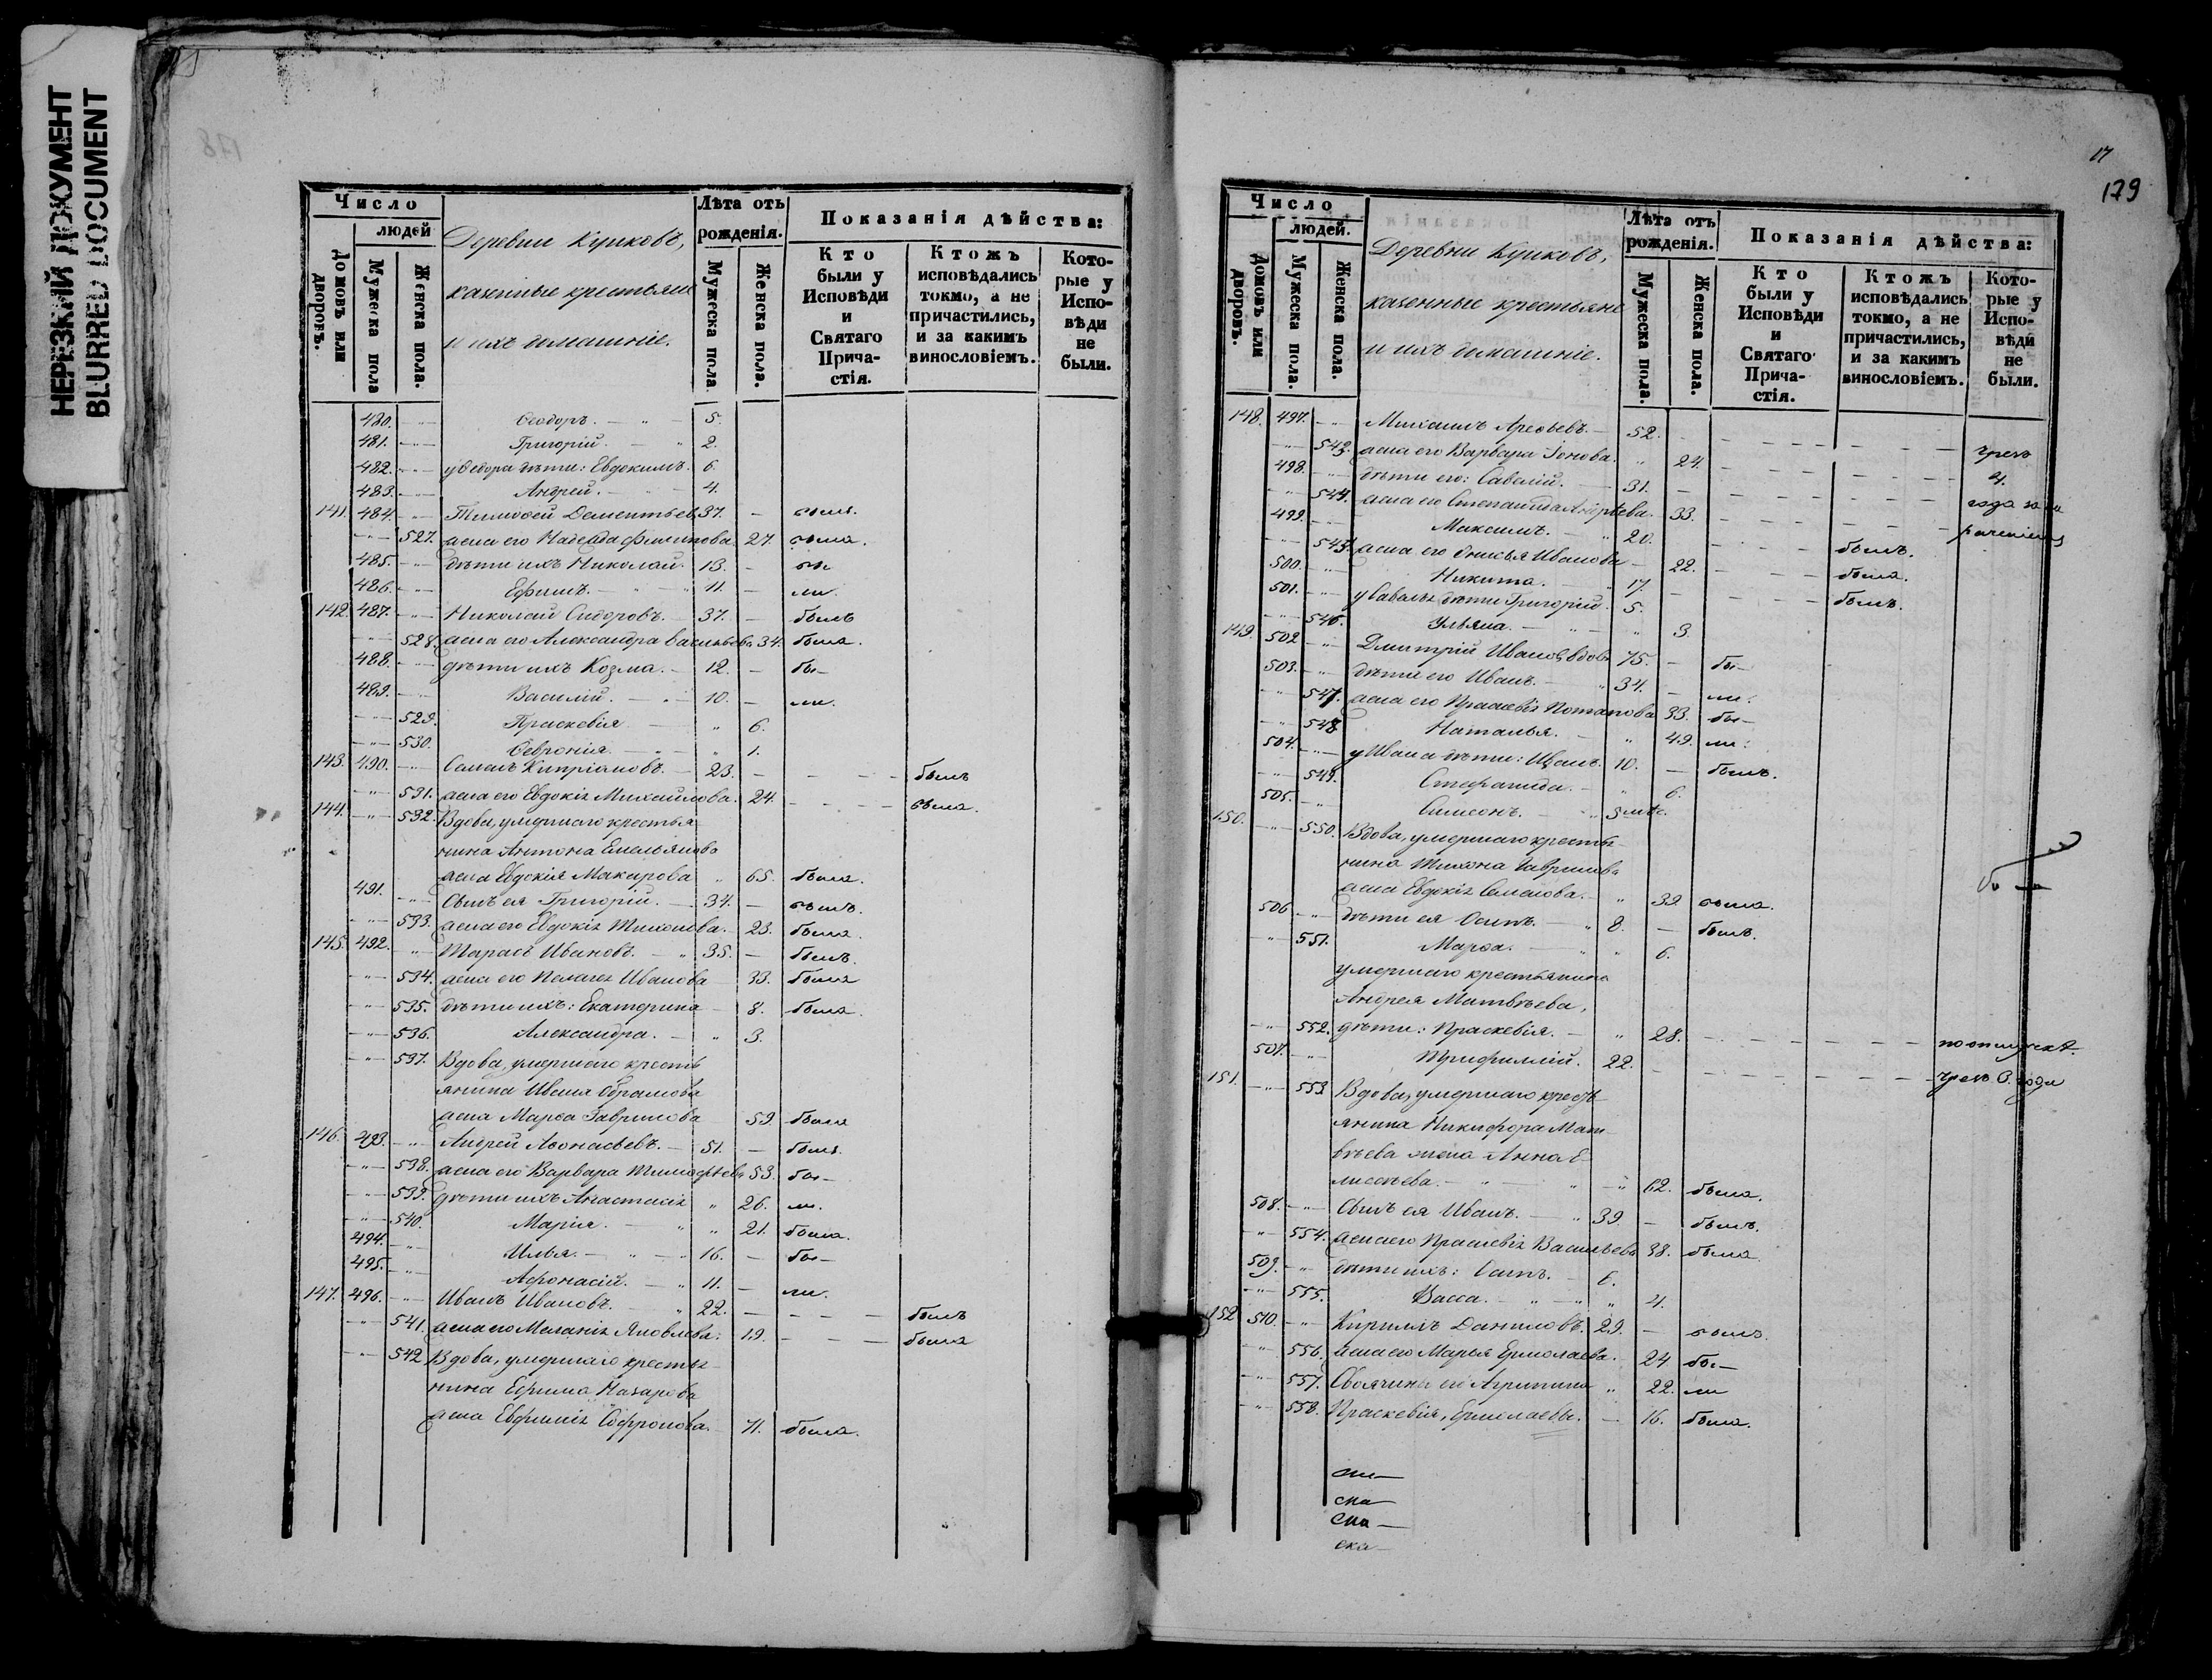 НЕРЕЗКИЙ ДОКУМЕНТ
BLURRED DOCUMENT
Число
людей
Домовъ или дворовъ.
Мужеска пола
Женска пола.
Деревни Куиковъ,
казенные крестьяне
и ихъ домашніе.
Лѣта отъ рожденія.
Мужеска пола.
Женска пола.
Показанія дѣйства:
Кто были у Исповѣди и Святаго Прича-стія.
Ктожъ исповѣдались токмо, а не причастились, и за какимъ винословіемъ.
Кото-рые у Испо-вѣди не были.
480. Ѳеодоръ. 5.
481. Григорій. 2.
482. у Ѳедора дѣти: Евдокимъ. 6.
483. Андрей. 4.
141. 484. Тимоѳей Дементьев 37. — былъ.
527. жена его Надежда Филипова. 27. была.
485. дѣти ихъ Николай. 13. — бы
486. Ефимъ. 11. — ли.
142. 487. Николай Сидоровъ. 37. — былъ
528. жена его Александра Васильева 34. была.
488. дѣти ихъ Козма. 12. — бы—
489. Василій. 10. — ли.
529. Праскевія 6.
530. Ѳевронія. 1.
143. 490. Семенъ Кипріановъ. 23. былъ
531. жена его Евдокія Михайлова. 24. была.
144. 532. Вдова, умершаго крестья-
нина Антона Емельянова
жена Евдокія Макарова 65. была.
491. Сынъ ея Григорій. 34. — былъ.
533. жена его Евдокія Тихонова. 23. была.
145. 492. Тарасъ Ивановъ. 35. — былъ.
534. жена его Пелагея Иванова 33. была
535. дѣти ихъ: Екатерина 8. была.
536. Александра. 3.
537. Вдова, умершаго кресть
янина Ивана Абрамова
жена Марѳа Гаврилова 59. была
146. 493. Андрей Аѳонасьевъ. 51. — былъ.
538. жена его Варвара Тимоѳеева 53. бы—
539. дѣти ихъ Анастасія 26. ли.
540. Марія. 21. была.
494. Илья. 16. — бы—
495. Афонасій. 11. — ли.
147. 496. Иванъ Ивановъ. 22. былъ
541. жена его Меланія Яковлева. 19. была
542 Вдова, умершаго крестья-
нина Ефима Назарова
жена Евфимія Софронова. 71. была.
17
179
Число
людей.
Домовъ или дворовъ.
Мужеска пола.
Женска пола.
Деревни Куиковъ,
казенные крестьяне
и ихъ домашніе.
Лѣта отъ рожденія.
Мужеска пола.
Женска пола.
Показанія дѣйства:
Кто были у Исповѣди и Святаго Прича-стія.
Ктожъ исповѣдались токмо, а не причастились, и за какимъ винословіемъ.
Кото-рые у Испо-вѣди не были.
148. 497. Михаилъ Арефьевъ. 52.
543. жена его Варвара Іонова. 24. чрезъ
498. дѣти его: Савелій. 31. 4.
544. жена его Степанида Андрѣева. 33. года за
499. Максимъ. 20. былъ.
545. жена его Анисья Иванова 22. была.
500. Никита. 17. былъ.
501. у Савелья дѣти Григорій. 5.
546. Ульяна. 3.
149. 502 Дмитрій Ивановъ вдовъ 75. — бы—
503. дѣти его Иванъ. 34. — ли.
547. жена его Праскевія Потапова 33. бы—
548 Наталья. 49. ли.
504. у Ивана дѣти: Иванъ. 10. — былъ.
549. Степанида. 6.
505. Симеонъ. 5 мѣс.
150. 550. Вдова, умершаго крестья-
нина Тихона Гаврилова
жена Евдокія Семенова. 39 была.
506 дѣти ея Осипъ. 8. — былъ.
551. Марѳа. 6.
умершаго крестьянина
Андрея Матвѣева,
552. дѣти: Праскевія. 28. по отлучкѣ.
507. Трифиллій. 22. чрезъ 3. года
151. 553 Вдова, умершаго кресть
янина Никифора Мат-
вѣева жена Анна Е-
лисѣева. 62. была.
508. Сынъ ея Иванъ. 39. — былъ.
554. жена его Праскевія Васильева 38. была
509. дѣти ихъ: Осипъ. 6.
555. Васса. 4.
152 510. Кириллъ Даниловъ. 29. — былъ.
556. жена его Марья Ермолаева. 24 бы—
557. Своячины его Агрипина 22. ли
558. Праскевія, Ермолаевы. 16. была.